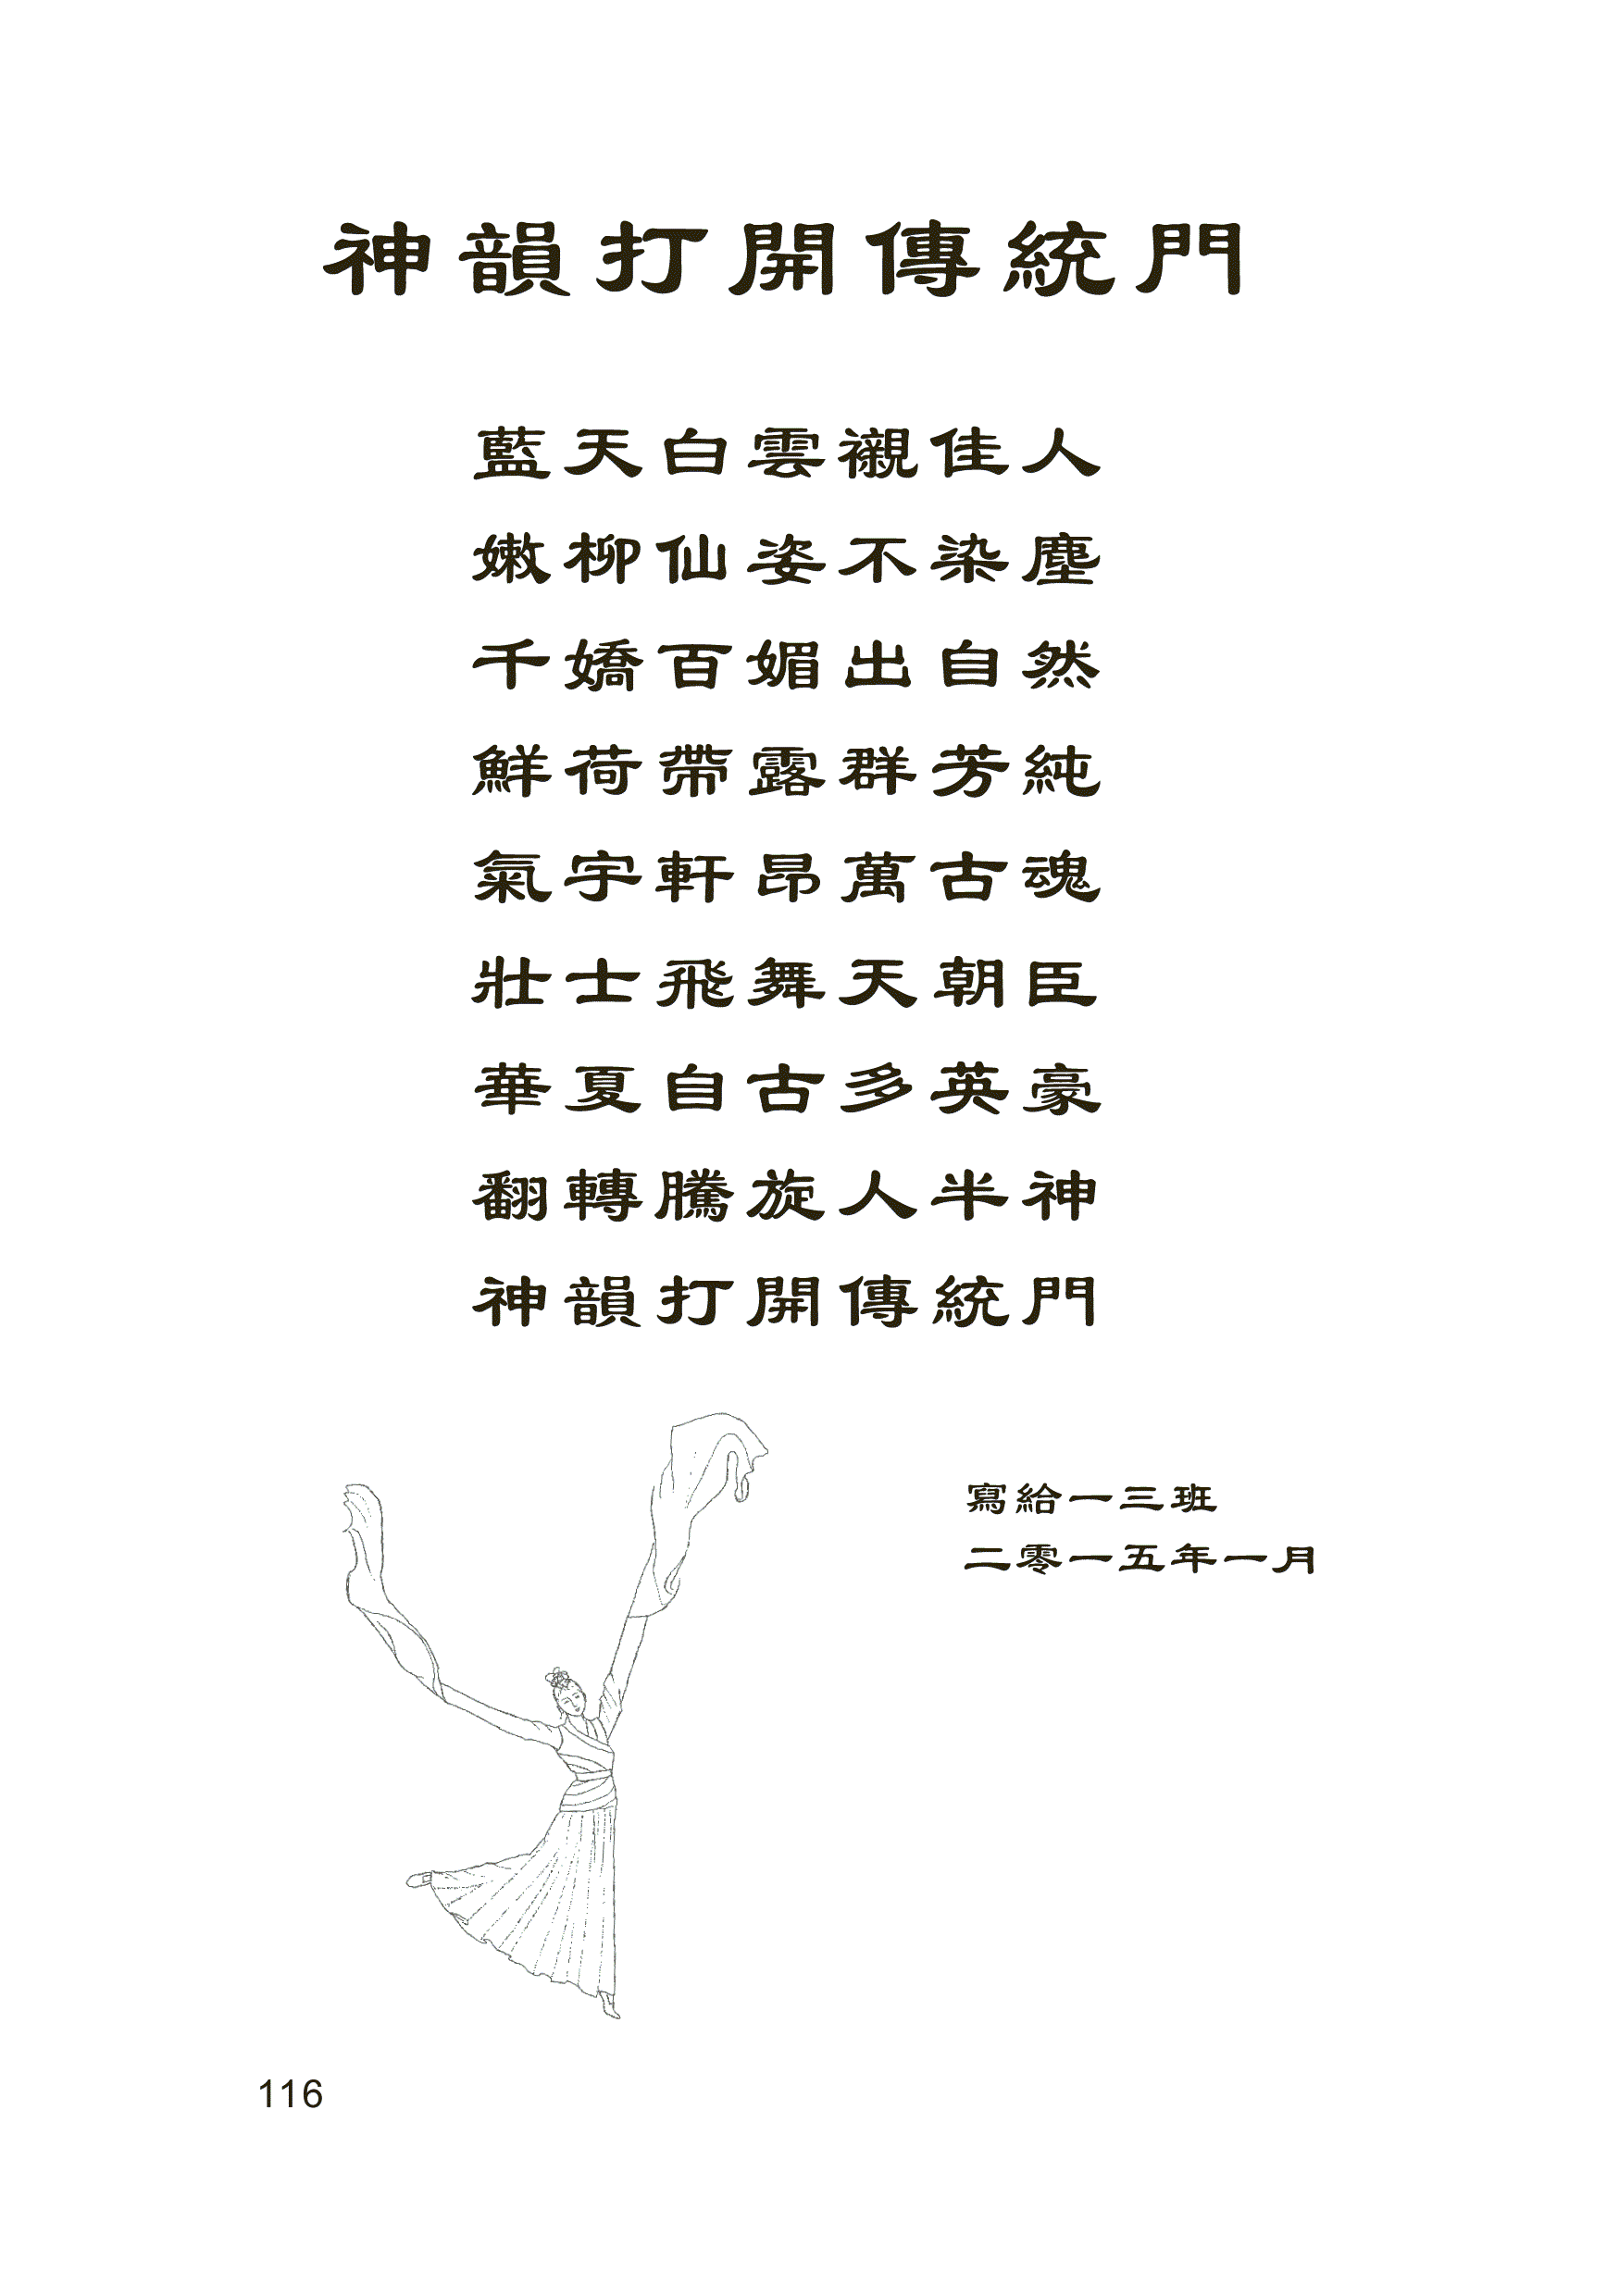 神韻打開傳統門
藍天白雲襯佳人
嫩柳仙姿不染塵
千嬌百媚出自然
鮮荷帶露群芳純
氣宇軒昂萬古魂
壯士飛舞天朝臣
華夏自古多英豪
翻轉騰旋人半神
神韻打開傳統門
寫給一三班
二零一五年一月
116